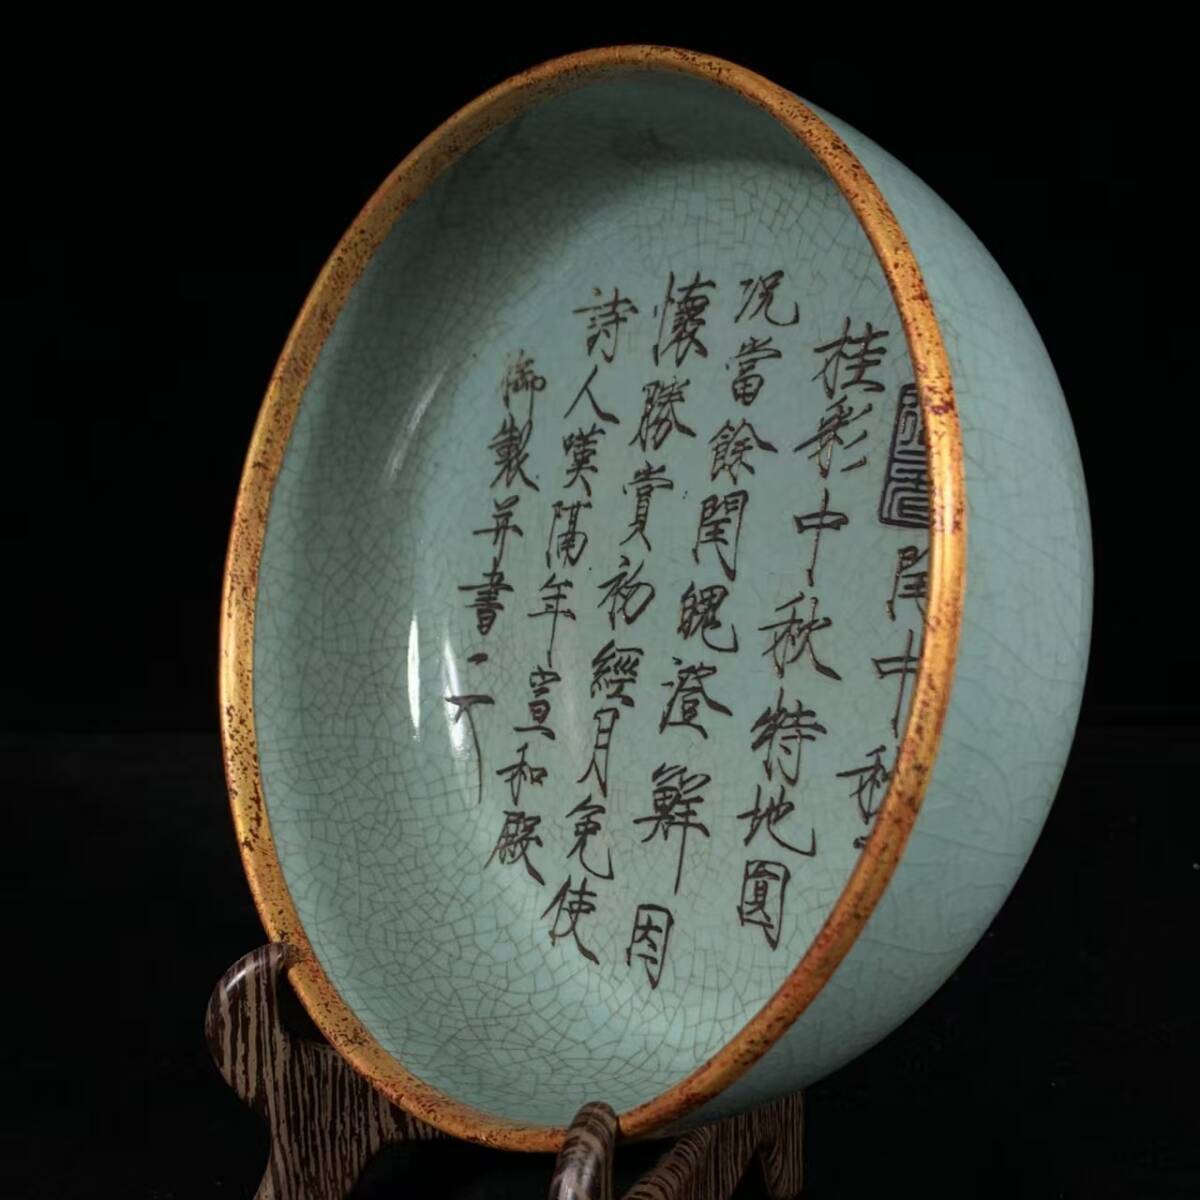 閏中秋
桂彩中秋特地圓
况當餘閏魄澄鮮因
懷勝賞初經月免使
詩人嘆隔年宣和殿
御製并書